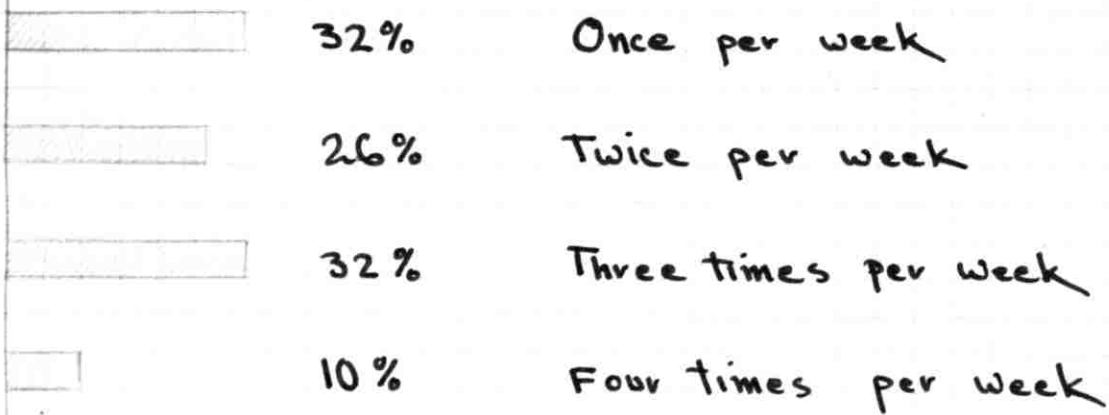 32% Once per week
26% Twice per week
32% Three times per week
10% Four times per week